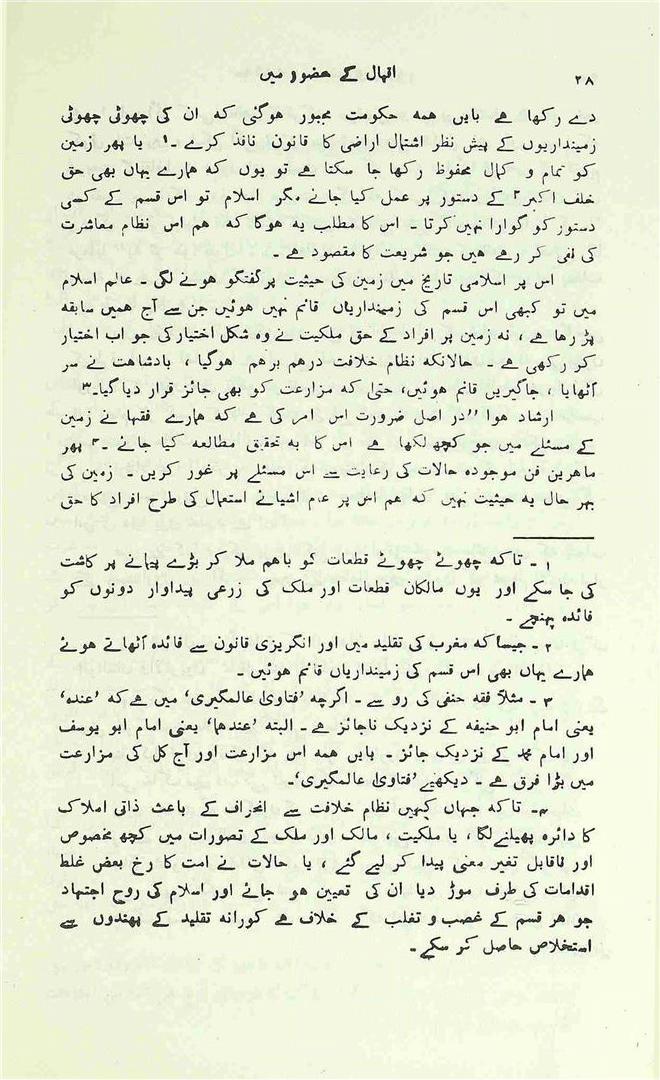 ۲۸
اقبال کے حضور میں
دے رکھا ہے بایں ہمہ حکومت مجبور ہوگئی کہ ان کی چھوٹی چھوٹی
زمینداریوں کے پیش نظر اشتمال اراضی کا قانون نافذ کرے ۔۱ یا پھر زمین
کو تمام و کمال محفوظ رکھا جا سکتا ہے تو یوں کہ ہمارے یہاں بھی حق
خلف اکبر۲ کے دستور پر عمل کیا جائے مگر اسلام تو اس قسم کے کسی
دستور کو گوارا نہیں کرتا ۔ اس کا مطلب یہ ہوگا کہ ہم اس نظام معاشرت
کی نفی کر رہے ہیں جو شریعت کا مقصود ہے ۔
اس پر اسلامی تاریخ میں زمین کی حیثیت پر گفتگو ہونے لگی ۔ عالم اسلام
میں تو کبھی اس قسم کی زمینداریاں قائم نہیں ہوئیں جن سے آج ہمیں سابقہ
پڑ رہا ہے ، نہ زمین پر افراد کے حق ملکیت نے وہ شکل اختیار کی جو اب اختیار
کر رکھی ہے ۔ حالانکہ نظام خلافت درہم برہم ہوگیا ، بادشاہت نے سر
اٹھایا ، جاگیریں قائم ہوئیں، حتیٰ کہ مزارعت کو بھی جائز قرار دیا گیا۔۳
ارشاد ہوا ”در اصل ضرورت اس امر کی ہے کہ ہمارے فقہا نے زمین
کے مسئلے میں جو کچھ لکھا ہے اس کا بہ تحقیق مطالعہ کیا جائے ۔۴ پھر
ماہرین فن موجودہ حالات کی رعایت سے اس مسئلے پر غور کریں ۔ زمین کی
بہر حال یہ حیثیت نہیں کہ ہم اس پر عام اشیائے استعمال کی طرح افراد کا حق
۱ ۔ تاکہ چھوٹے چھوٹے قطعات کو باہم ملا کر بڑے پیمانے پر کاشت
کی جا سکے اور یوں مالکان قطعات اور ملک کی زرعی پیداوار دونوں کو
فائدہ پہنچے ۔
۲ ۔ جیسا کہ مغرب کی تقلید میں اور انگریزی قانون سے فائدہ اٹھاتے ہوئے
ہمارے یہاں بھی اس قسم کی زمینداریاں قائم ہوئیں ۔
۳ ۔ مثلاً فقہ حنفی کی رو سے ۔ اگرچہ ’فتاویٰ عالمگیری‘ میں ہے کہ ’عندہ‘
یعنی امام ابو حنیفہ کے نزدیک ناجائز ہے ۔ البتہ ’عندھما‘ یعنی امام ابو یوسف
اور امام محمد کے نزدیک جائز ۔ بایں ہمہ اس مزارعت اور آج کل کی مزارعت
میں بڑا فرق ہے ۔ دیکھیے ’فتاویٰ عالمگیری‘۔
۴۔ تاکہ جہاں کہیں نظام خلافت سے انحراف کے باعث ذاتی املاک
کا دائرہ پھیلنے لگا ، یا ملکیت ، مالک اور ملک کے تصورات میں کچھ مخصوص
اور ناقابل تغیر معنی پیدا کر لیے گئے ، یا حالات نے امت کا رخ بعض غلط
اقدامات کی طرف موڑ دیا ان کی تعیین ہو جائے اور اسلام کی روح اجتہاد
جو ہر قسم کے غصب و تغلب کے خلاف ہے کورانہ تقلید کے پھندوں سے
استخلاص حاصل کر سکے ۔